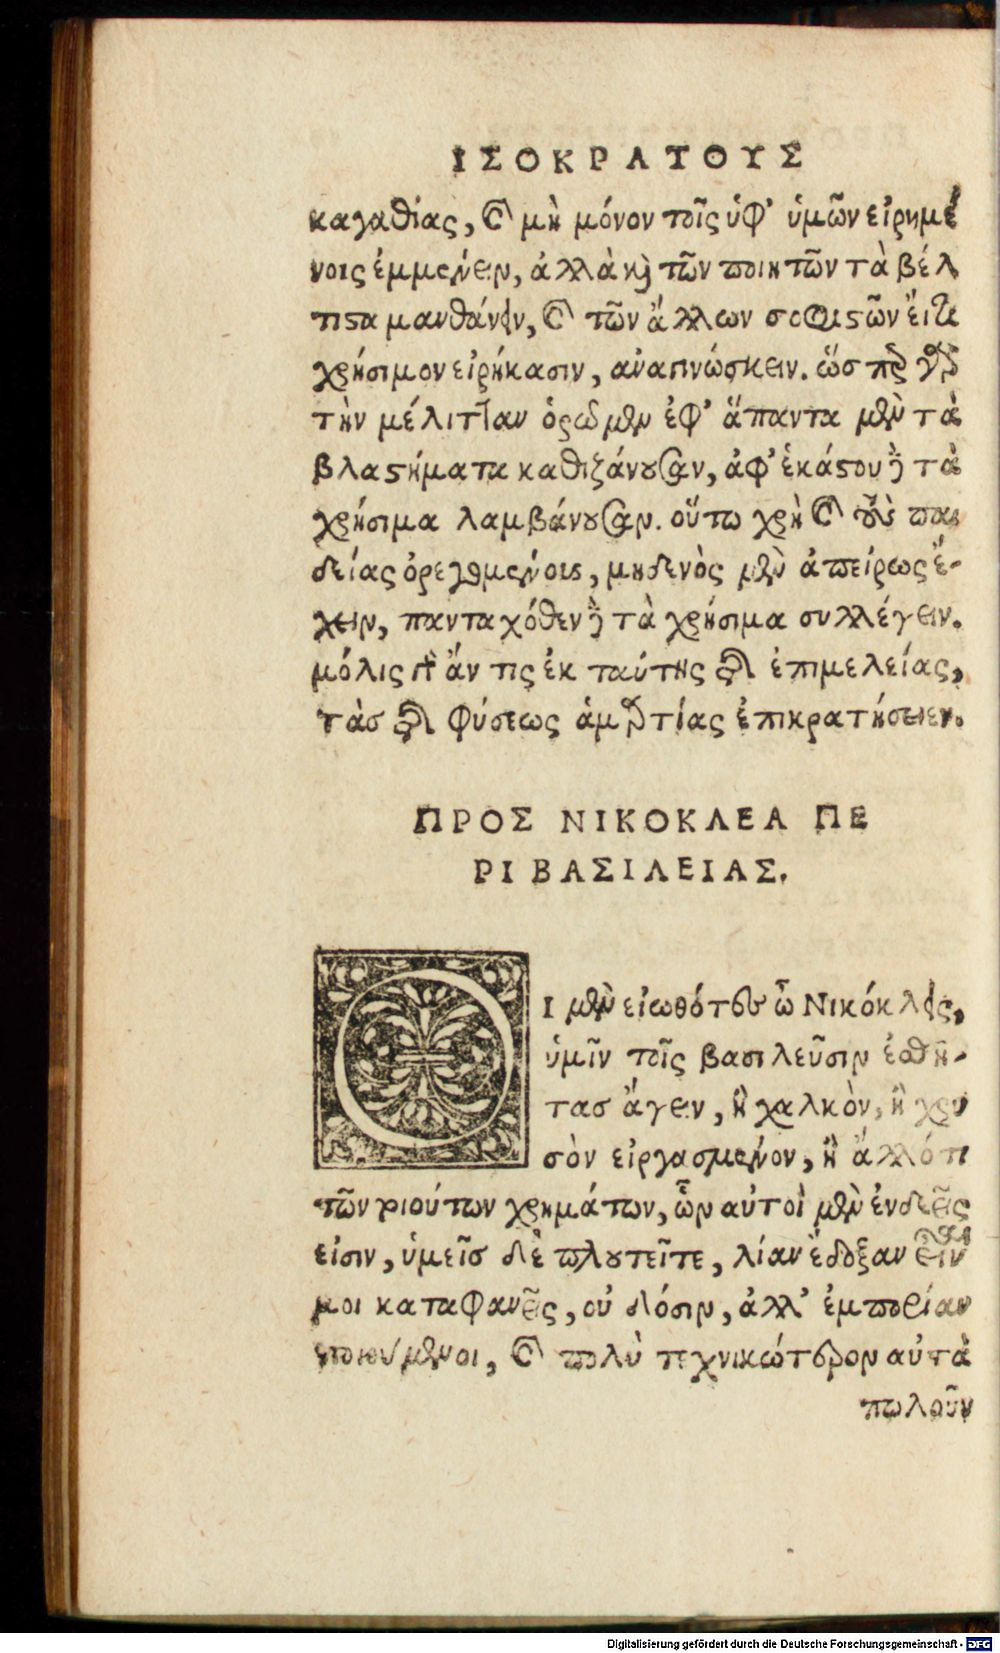 ΙΣΟΚΡΑΤΟΥΣ
καγαθίας, καὶ μὴ μόνον τοῖς ὑφ' ὑμῶν εἰρημέ
νοις ἐμμένειν, ἀλλὰ καὶ τῶν ποιητῶν τὰ βέλ
τιστα μανθάνειν, καὶ τῶν ἄλλων σοφιστῶν εἴ τι
χρήσιμον εἰρήκασιν, ἀναγινώσκειν. ὥσπερ γὰρ
τὴν μέλιτταν ὁρῶμεν ἐφ' ἅπαντα μὲν τὰ
βλαστήματα καθιζάνουσαν, ἀφ' ἑκάστου δὲ τὰ
χρήσιμα λαμβάνουσαν. οὕτω χρὴ καὶ τοὺς παι
δείας ὀρεγομένους, μηδενὸς μὲν ἀπείρως ἔ-
χειν, πανταχόθεν δὲ τὰ χρήσιμα συλλέγειν.
μόλις γὰρ ἄν τις ἐκ ταύτης τῆς ἐπιμελείας,
τὰς τῆς φύσεως ἁμαρτίας ἐπικρατήσειεν.
ΠΡΟΣ ΝΙΚΟΚΛΕΑ ΠΕ
ΡΙ ΒΑΣΙΛΕΙΑΣ.
ΟΙ μὲν εἰωθότες ὦ Νικόκλεις,
ὑμῖν τοῖς βασιλεῦσιν ἐσθῆ-
τας ἄγειν, ἢ χαλκὸν, ἢ χρυ
σὸν εἰργασμένον, ἢ ἄλλό τι
τῶν τοιούτων χρημάτων, ὧν αὐτοὶ μὲν ἐνδεεῖς
εἰσιν, ὑμεῖς δὲ πλουτεῖτε, λίαν ἔδοξαν εἶναί
μοι καταφανεῖς, οὐ δόσιν, ἀλλ' ἐμπορίαν
ποιούμενοι, καὶ πολὺ τεχνικώτερον αὐτὰ
πωλοῦν
Digitalisierung gefördert durch die Deutsche Forschungsgemeinschaft - DFG